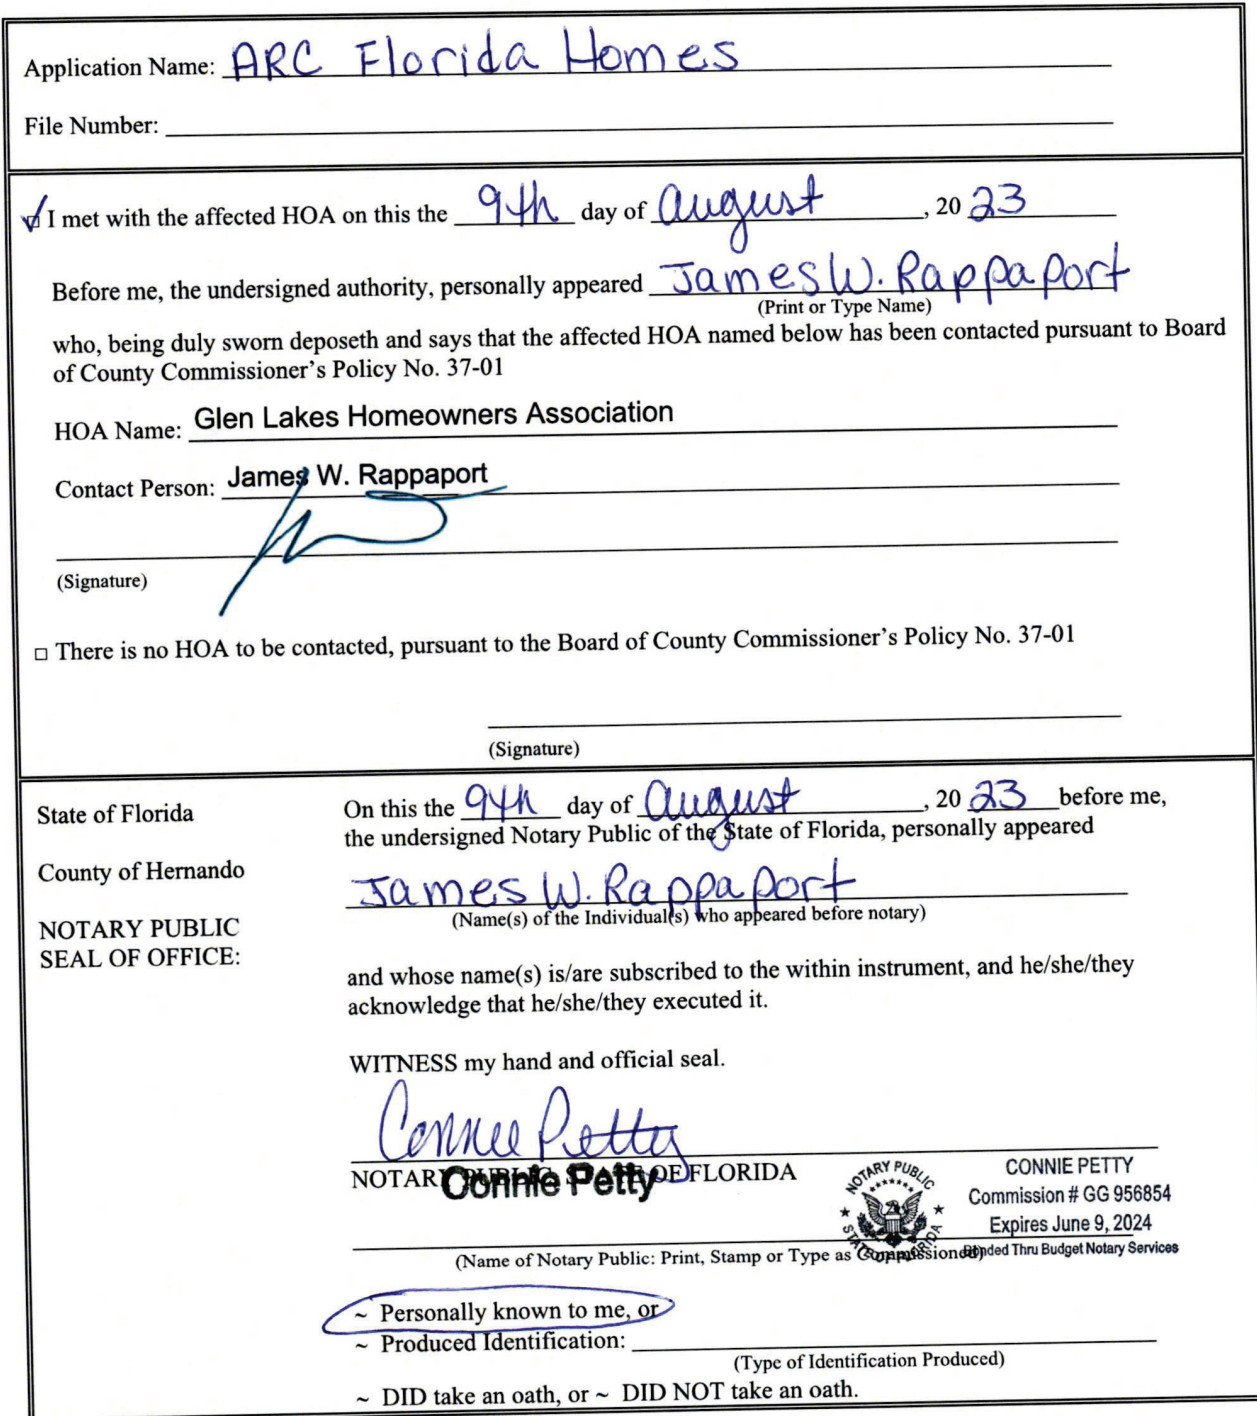 Application Name: ARC Florida Homes
File Number:
I met with the affected HOA on this the 9th day of August, 20 23
Before me, the undersigned authority, personally appeared James W. Rappaport
(Print or Type Name)
who, being duly sworn deposeth and says that the affected HOA named below has been contacted pursuant to Board
of County Commissioner's Policy No. 37-01
HOA Name: Glen Lakes Homeowners Association
Contact Person: James W. Rappaport
(Signature)
□ There is no HOA to be contacted, pursuant to the Board of County Commissioner's Policy No. 37-01
(Signature)
State of Florida
County of Hernando
NOTARY PUBLIC
SEAL OF OFFICE:
On this the 9th day of August, 20 23 before me,
the undersigned Notary Public of the State of Florida, personally appeared
James W. Rappaport
(Name(s) of the Individual(s) who appeared before notary)
and whose name(s) is/are subscribed to the within instrument, and he/she/they
acknowledge that he/she/they executed it.
WITNESS my hand and official seal.
Connie Petty
NOTARY PUBLIC, STATE OF FLORIDA
Connie Petty
NOTARY PUBLIC
STATE OF FLORIDA
CONNIE PETTY
Commission # GG 956854
Expires June 9, 2024
Bonded Thru Budget Notary Services
(Name of Notary Public: Print, Stamp or Type as Commissioned)
~ Personally known to me, or
~ Produced Identification:
(Type of Identification Produced)
~ DID take an oath, or ~ DID NOT take an oath.